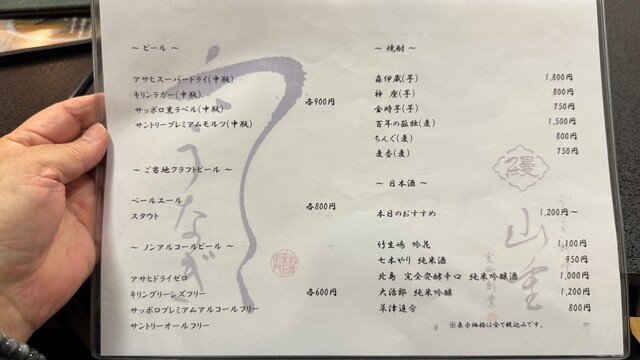 ～ ビール ～
アサヒスーパードライ(中瓶)
キリンラガー(中瓶)
サッポロ黒ラベル(中瓶)
サントリープレミアムモルツ(中瓶)
各900円
～ ご当地クラフトビール ～
ペールエール
スタウト
各800円
～ ノンアルコールビール ～
アサヒドライゼロ
キリングリーンズフリー
サッポロプレミアムアルコールフリー
サントリーオールフリー
各600円
～ 焼酎 ～
森伊蔵(芋) 1,800円
神 座(芋) 800円
金時芋(芋) 750円
百年の孤独(麦) 1,500円
ちんぐ(麦) 800円
麦香(麦) 750円
～ 日本酒 ～
本日のおすすめ 1,200円～
竹生嶋 吟花 1,100円
七本やり 純米酒 950円
北島 完全発酵辛口 純米吟醸酒 1,000円
大治郎 純米吟醸 1,200円
草津追分 800円
※表示価格は全て税込みです。
うなぎ
山重